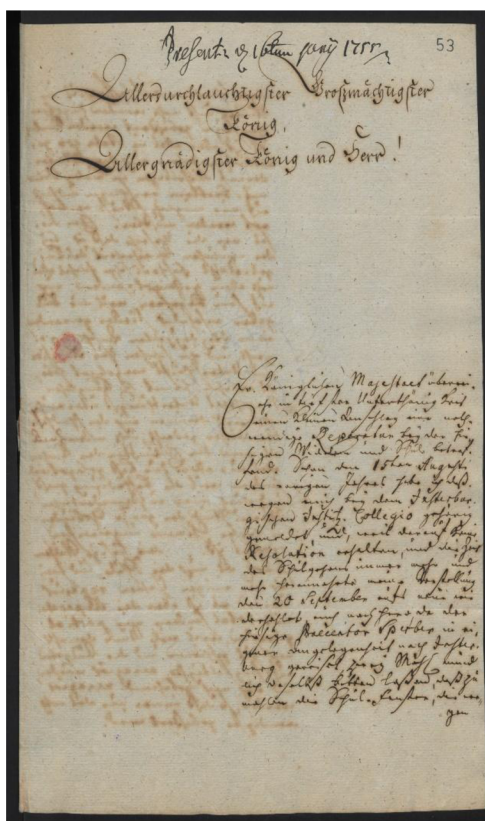 Present: d. 16ten Junij 1755.
53
Allerdurchlauchtigster Großmächtigster
König,
Allergnädigster König und Herr!
Ew. Königlichen Majestaet überrei-
in tiefster Unterthänigkeit
einen kleinen Anschlag eine noth-
wendige Reparatur bey der hie-
sigen Widdem und Schul betref-
fend. Schon den 15ten Augusti
des vorigen Jahres habe
wegen mich bey dem Insterbur-
gischen Justitz Collegio gehörig
gemeldet und, weil
Resolution erhalten, und die Zeit
des Schulgehens immer mehr und
mehr meine Vorstellung
den 20 September aufs neue wie-
derhohlet, auch nachhero da der
hiesige Praecentor Sperber in ei-
gener Angelegenheit nach Inster-
burg gereiset mündlich
daselbst bitten laßen, daß zu
die Schul-Fenster, die we-
gen